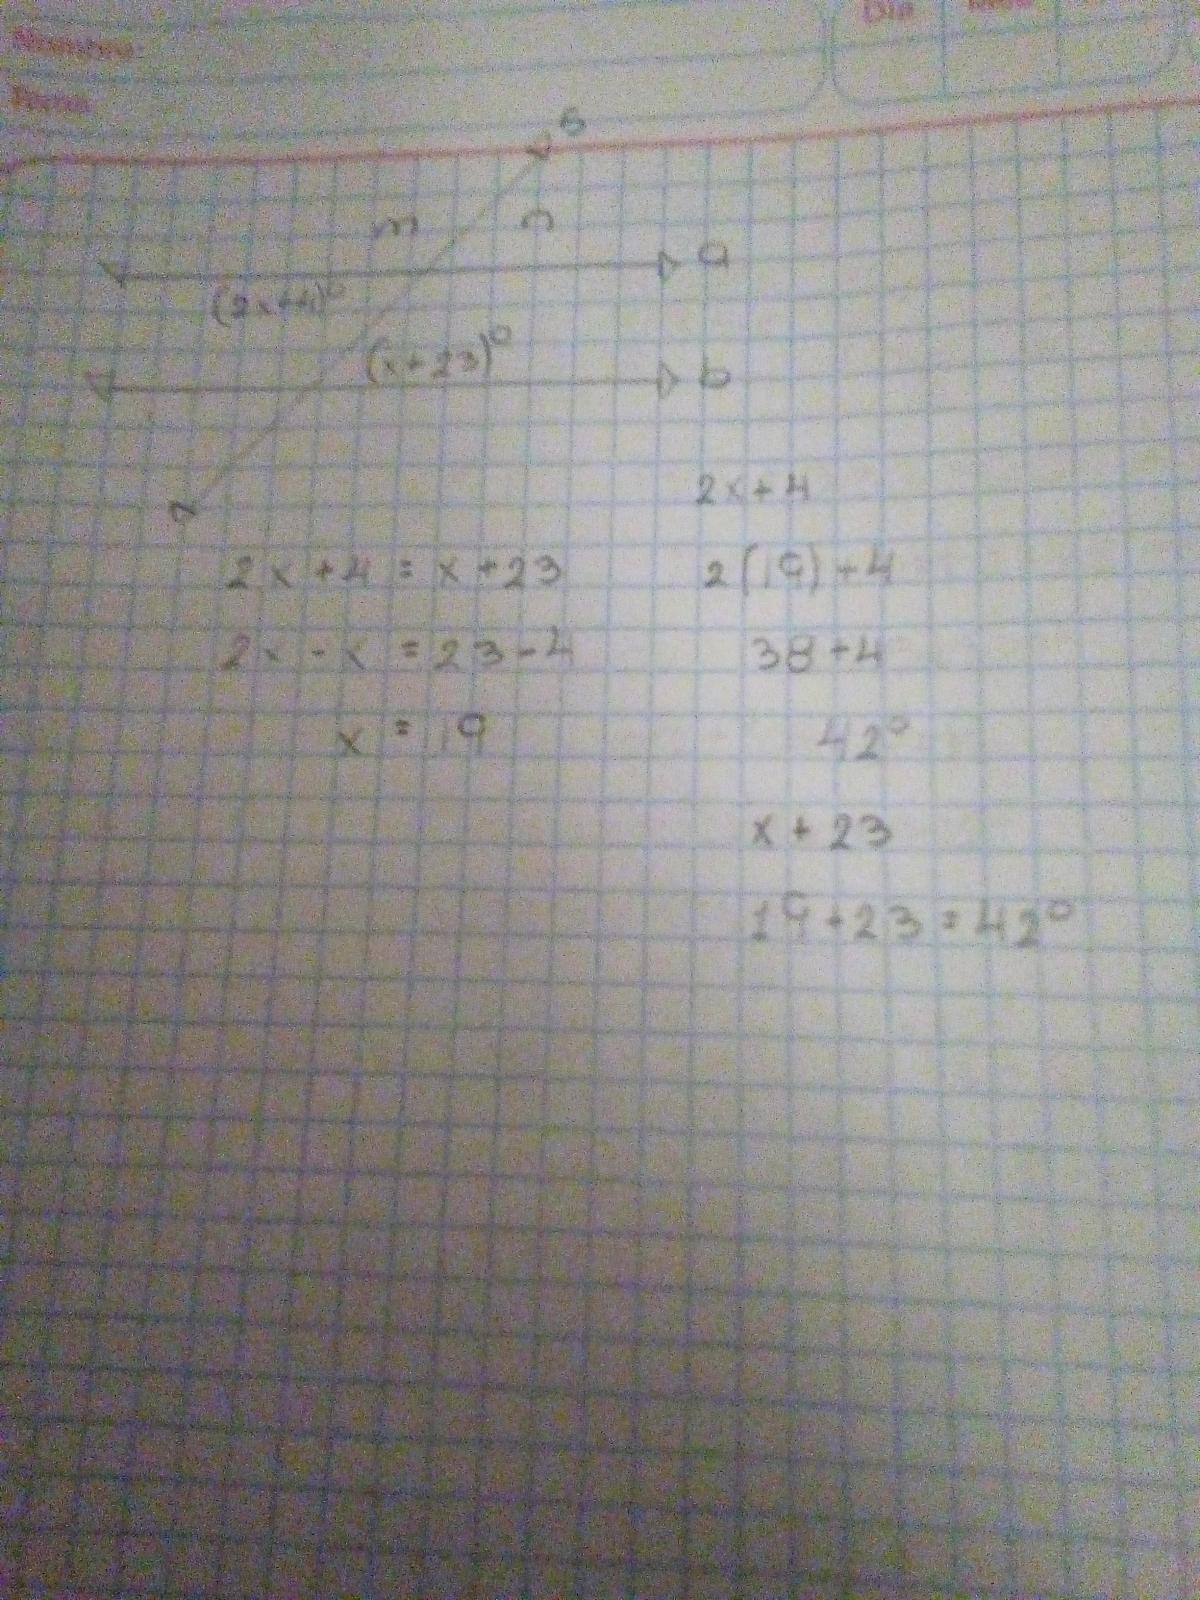 Nombre:
Día Mes
s
m n
a
(2x+4)°
(x+23)°
b
2x+4
2x+4 = x+23
2(19)+4
2x-x = 23-4
38+4
x = 19
42°
x+23
19+23=42°